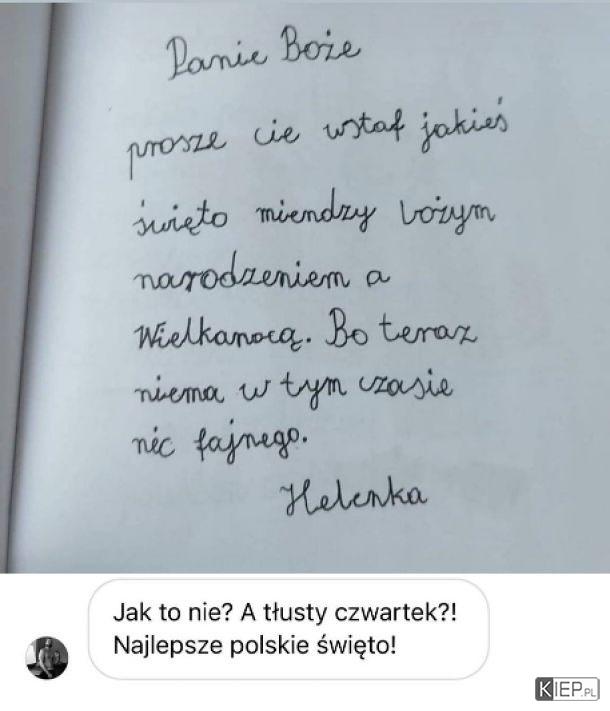 Panie Boże
prosze cie wstaf jakieś
święto miendzy bożym
narodzeniem a
Wielkanocą. Bo teraz
niema w tym czasie
nic fajnego.
Helenka
Jak to nie? A tłusty czwartek?!
Najlepsze polskie święto!
KIEP.PL